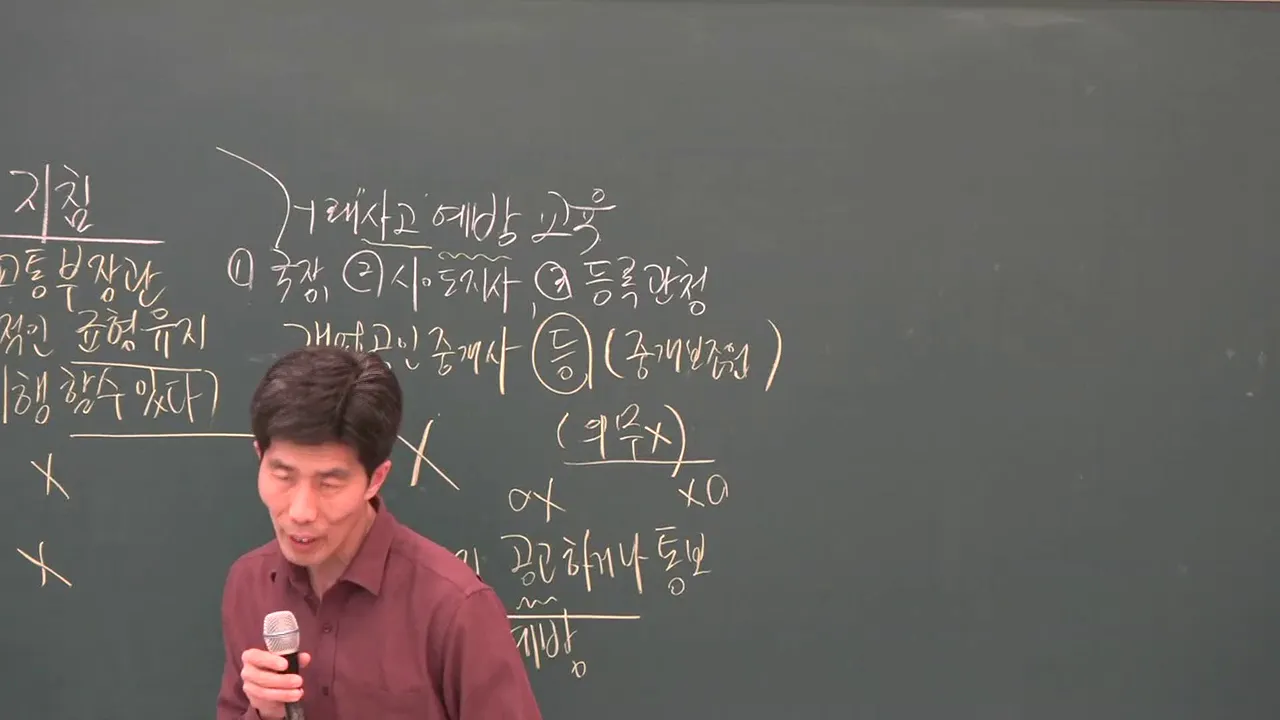 지침
교통부장관
적인 균형유지
시행 할 수 있다)
X
X
거래사고 예방 교육
① 국장, ② 시·도지사, ③ 등록관청
개업공인중개사 등 (중개보조원)
X
(의무X)
OX
XO
공고하거나 통보
예방